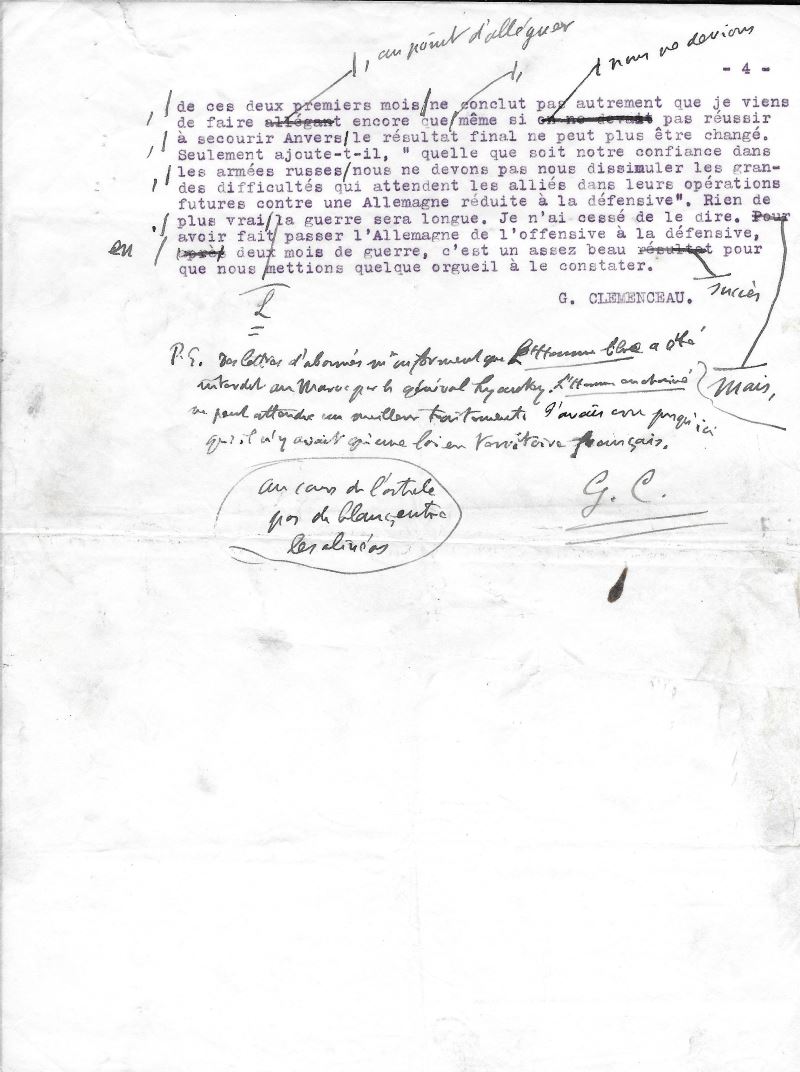 , au point d'alléguer
,
nous ne devions
- 4 -
, de ces deux premiers mois/ne conclut pas autrement que je viens
, de faire allégant encore que même si on ne devait pas réussir
, à secourir Anvers/le résultat final ne peut plus être changé.
Seulement ajoute-t-il, " quelle que soit notre confiance dans
, les armées russes/nous ne devons pas nous dissimuler les gran-
des difficultés qui attendent les alliés dans leurs opérations
futures contre une Allemagne réduite à la défensive". Rien de
. plus vrai/la guerre sera longue. Je n'ai cessé de le dire. Pour
avoir fait passer l'Allemagne de l'offensive à la défensive,
en après deux mois de guerre, c'est un assez beau résultat pour
que nous mettions quelque orgueil à le constater.
L
succès
G. CLEMENCEAU.
Mais,
P.S. Des lettres d'abonnés m'informent que L'Homme libre a été
interdit au Maroc par le général Lyautey. L'Homme enchaîné
ne peut attendre un meilleur traitement. J'avais cru jusqu'ici
qu'il n'y avait qu'une loi en territoire français.
G. C.
au cours de l'article
pas de blancs entre
les alinéas